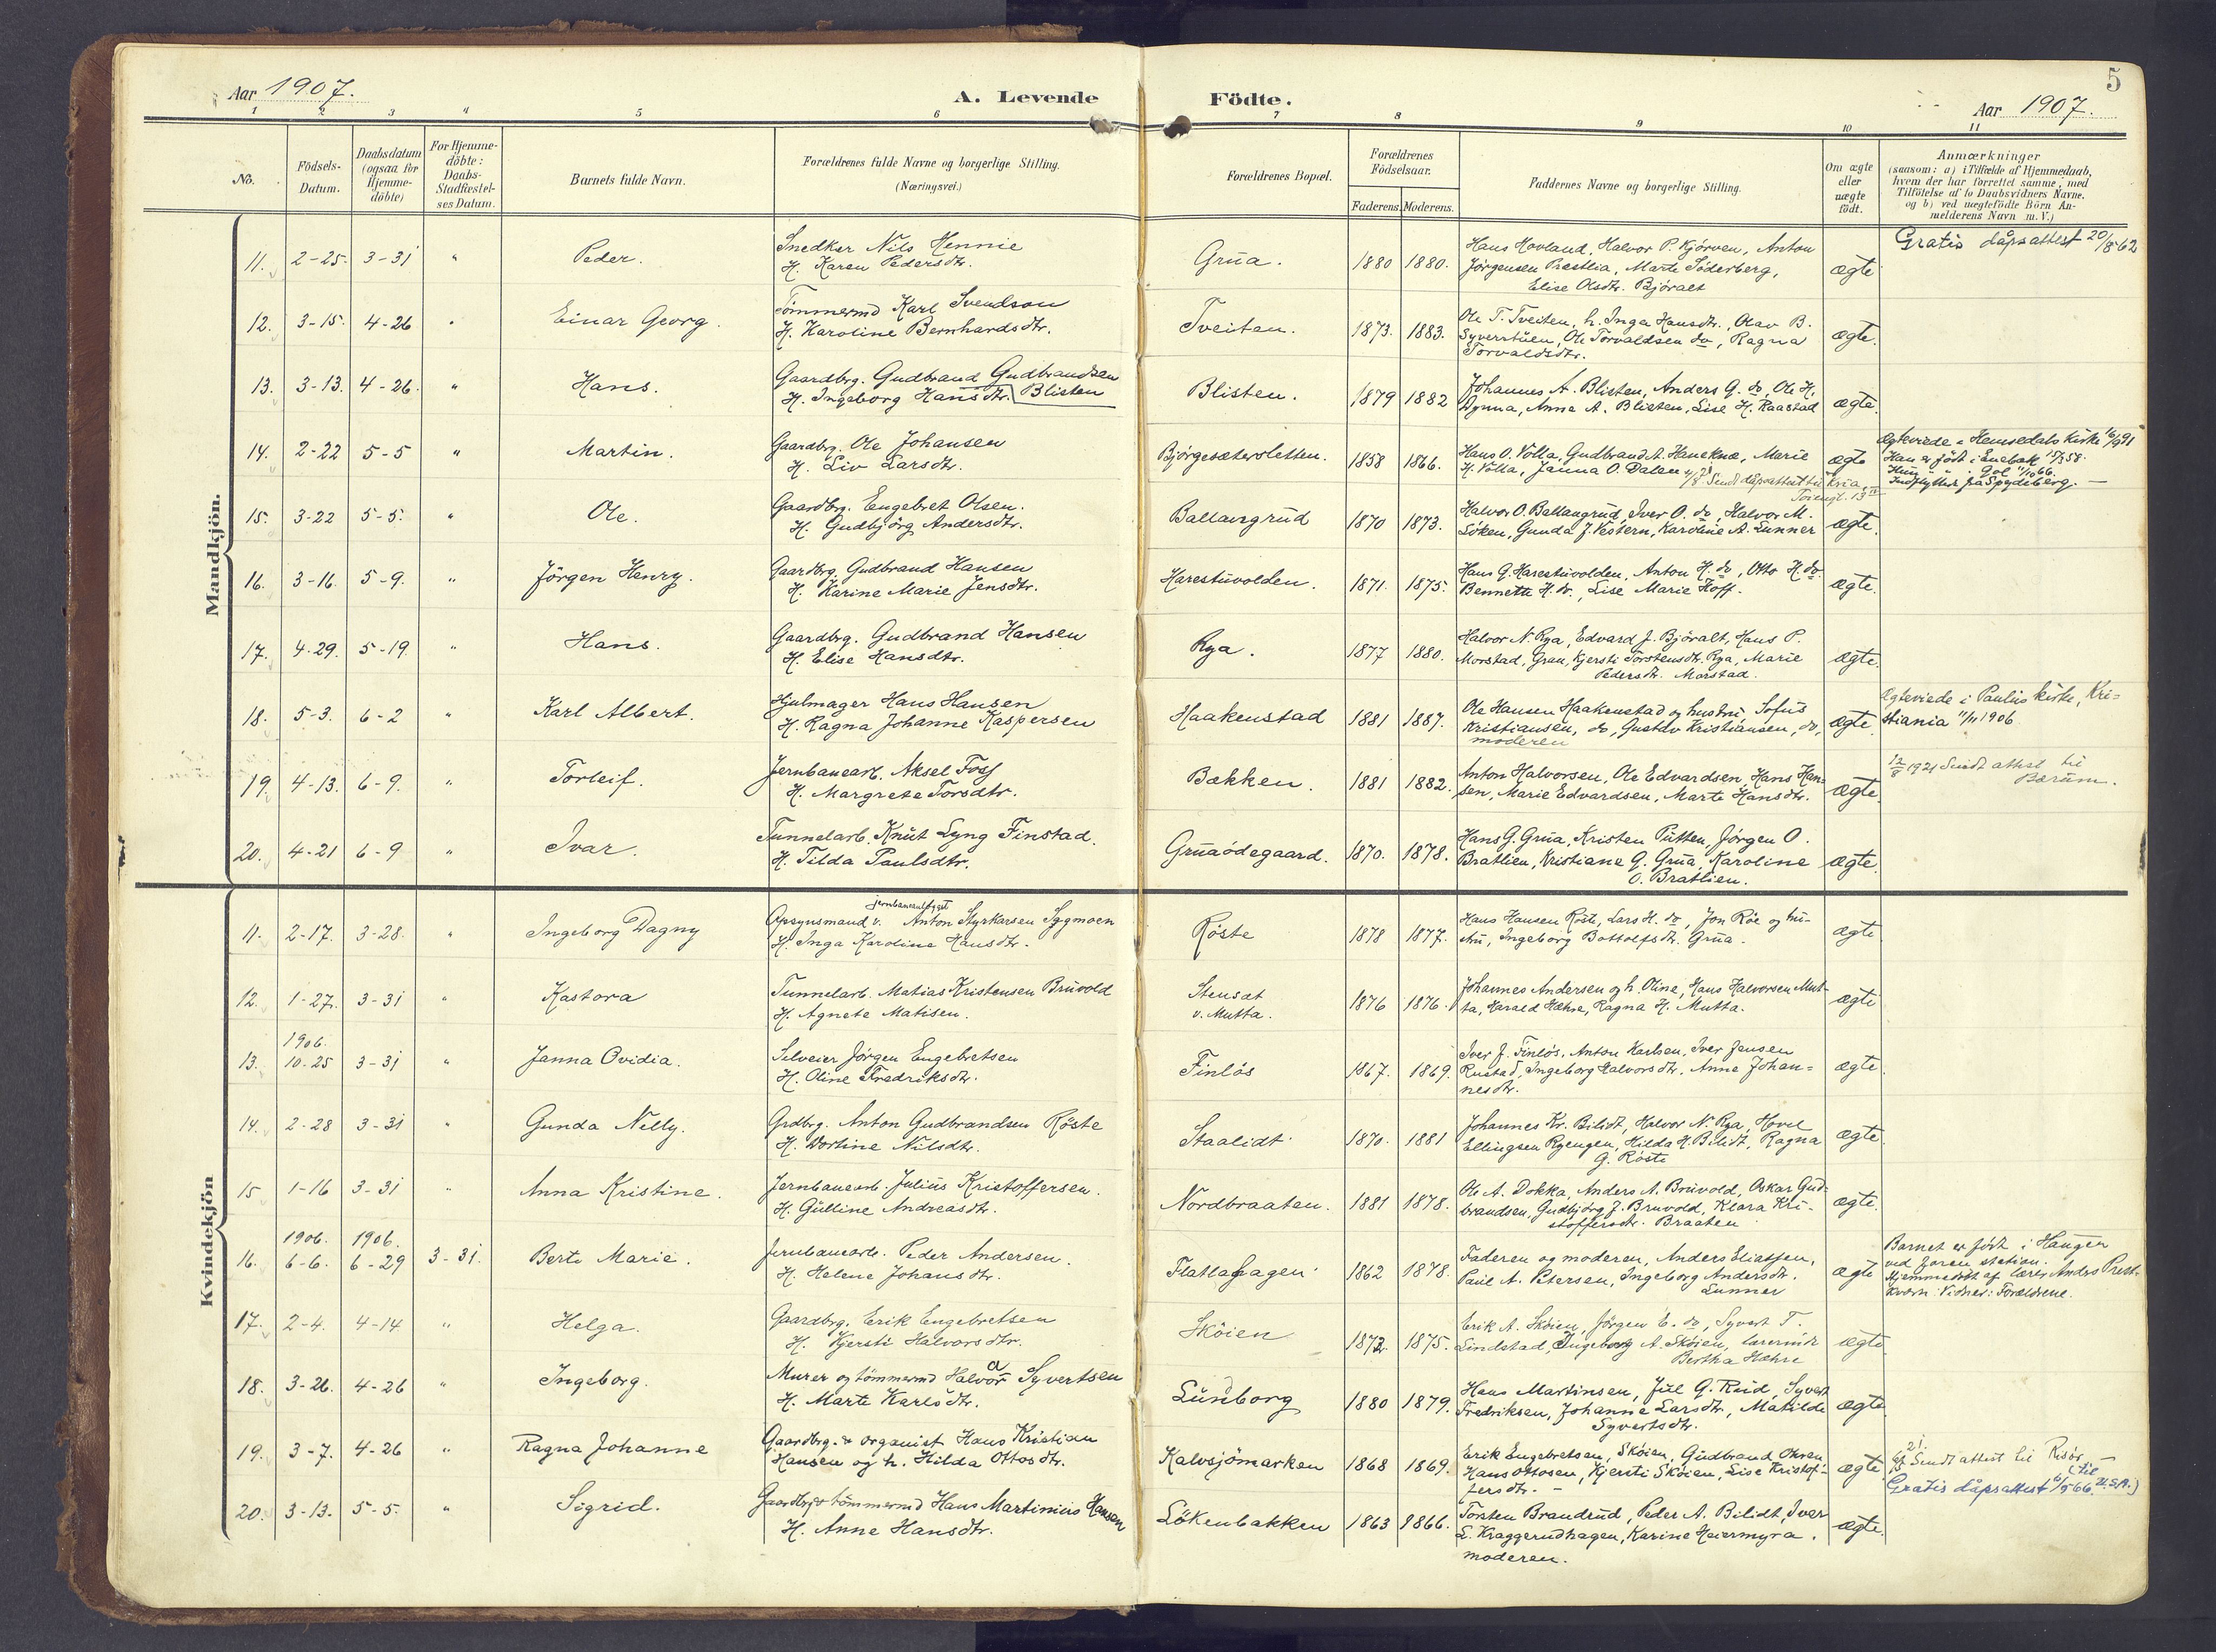 5
Aar 1907.
A. Levende Födte.
Aar 1907.
1 2 3 4 5 6 7 8 9 10 11
No.
Födsels-Datum.
Daabsdatum (ogsaa for Hjemme-döbte)
For Hjemme-döbte: Daabs-Stadfæstel-ses Datum.
Barnets fulde Navn.
Forældrenes fulde Navne og borgerlige Stilling. (Næringsvei.)
Forældrenes Bopæl.
Forældrenes Födselsaar.
Faderens. Moderens.
Faddernes Navne og borgerlige Stilling.
Om ægte eller uægte födt.
Anmærkninger
(saasom: a) i Tilfælde af Hjemmedaab,
hvem der har forrettet samme, med
Tilföielse af to Daabsvidners Navne.
og b) ved uægtefödte Börn An-
melderens Navn m. V.)
Mandkjön.
11. 2-25. 3-31 " Peder. Snedker Nils Hennie
H. Karen Pedersdtr.
Grua. 1880 1880.
Hans Hovland, Halvor P. Kjörven, Anton
Jörgensen Prestlia, Marte Söderberg,
Elise Olsdtr. Björalt
ægte
Gratis dåpsattest 20/8 62
12. 3-15. 4-26 " Einar Georg. Tömmermd Karl Svendson
H. Karoline Bernhardsdtr.
Tveiten. 1873. 1883.
Ole T. Tveiten, h. Inga Hansdtr., Olav B.
Syverstuen, Ole Torvaldsen do, Ragna
Torvaldsdtr.
ægte.
13. 3-13. 4-26. " Hans. Gaardbrg. Gudbrand Gudbrandsen
H. Ingeborg Hansdtr. Blisten
Blisten. 1879 1882
Johannes A. Blisten, Anders G. do, Ole H.
Dynna, Anne A. Blisten, Lise H. Raastad
ægte.
14. 2-22 5-5 " Martin. Gaardbrg. Ole Johansen
H. Liv Larsdtr.
Bjørgesætersletten. 1858 1866.
Hans O. Volla, Gudbrand A. Haneknæ, Marie
H. Volla, Janna O. Dalen
Sendt dåpsattest til Kria,
ægte
Ægteviede i Hemsedals Kirke
Han er født i Enebak
Hun " " i Gol
Indflyttede fra Spydeberg. —
15. 3-22 5-5. " Ole. Gaardbrg. Engebret Olsen.
H. Gudbjörg Andersdtr.
Ballangrud 1870 1873.
Halvor O. Ballangrud, Iver O. do, Halvor M.
Löken, Gunda J. Vestern, Karoline A. Lunner
ægte.
16. 3-16. 5-9. " Jörgen Henry. Gaardbrg. Gudbrand Hansen
H. Karine Marie Jensdtr.
Harestuvolden. 1871. 1875.
Hans G. Harestuvolden, Anton H. do, Otto H. do
Bennette H. do., Lise Marie Hoff.
ægte.
17. 4-29. 5-19. " Hans. Gaardbrg. Gudbrand Hansen
H. Elise Hansdtr.
Rya. 1877 1880.
Halvor N. Rya, Edvard J. Björalt, Hans P.
Morstad, Gran, Kjersti Torstensdtr. Rya, Marie
Pedersdtr. Morstad.
ægte.
18. 5-3. 6-2 " Karl Albert. Hjulmager Hans Hansen
H. Ragna Johanne Kaspersen
Haakenstad 1881 1887.
Ole Hansen Haakenstad og hustru, Sofus
Kristiansen, do, Gustav Kristiansen, do,
moderen
ægte.
Ægteviede i Paulus kirke, Kri-
stiania 11/11 1906
19. 4-13. 6-9. " Torleif. Jernbanearb. Aksel Foss
H. Margrete Torsdtr.
Bakken. 1881 1882.
Anton Halvorsen, Ole Edvardsen, Hans Han-
sen, Marie Edvardsen, Marte Hansdtr.
ægte.
12/8 1921 Sendt attest til
Bærum.
20. 4-21 6-9 " Ivar. Tunnelarb. Knut Lyng Finstad.
H. Tilda Paulsdtr.
Gruaödegaard. 1870. 1878.
Hans G. Grua, Kristen Putten, Jörgen O.
Bratlien, Kristiane G. Grua, Karoline
O. Bratlien.
ægte.
Kvindekjön
11. 2-17. 3-28. " Ingeborg Dagny
jernbaneanlegget
Opsynsmand v. Anton Styrkarsen Sygmoen
H. Inga Karoline Hansdtr.
Röste 1878 1877.
Hans Hansen Röste, Lars H. do, Jon Röe og hu-
stru, Ingeborg Bottolfsdtr. Grua.
ægte
12. 1-27. 3-31 " Kastora Tunnelarb. Matias Kristensen Bruvold
H. Agnete Matisen.
Stensæt
v. Mutta. 1876 1876.
Johannes Andersen og h. Oline, Hans Halvorsen Mut-
ta, Harald Hæhre, Ragna H. Mutta.
ægte
1906.
13. 10-25 3-31 " Janna Ovidia. Selveier Jörgen Engebretsen
H. Oline Fredriksdtr.
Finlös 1867. 1869.
Iver J. Finlös, Anton Karlsen, Iver Jensen
Rustad, Ingeborg Halvorsdtr. Anne Johan-
nesdtr.
ægte.
14. 2-28 3-31 " Gunda Nelly. Grdbrg. Anton Gudbrandsen Röste
H. Dortine Nilsdtr.
Staalidt 1870. 1881
Johannes Kr. Bilidt, Halvor N. Rya, Hovel
Ellingsen Ryengen, Hilda H. Bilidt, Ragna
G. Röste
ægte.
15 1-16 3-31 " Anna Kristine. Jernbanearb. Julius Kristoffersen.
H. Gulline Andreasdtr.
Nordbraaten. 1881 1878.
Ole A. Dokka, Anders A. Bruvold, Oskar Gud-
brandsen, Gudbjörg J. Bruvold, Klara Kri-
stoffersdtr. Braaten
ægte.
1906. 1906.
16. 6-6. 6-29 3-31. Berte Marie. Jernbanearb. Peder Andersen.
H. Helene Johansdtr.
Flatlahagen 1862 1878.
Faderen og moderen, Anders Eliassen,
Paul A. Petersen, Ingeborg Andersdtr.
Lunner
ægte
Barnet er født i Haugen
ved Jaren station.
Hjemmedöbt af lærer Anders Prest-
kværn. Vidner: Forældrene.
17. 2-4. 4-14 " Helga. Gaardbrg. Erik Engebretsen
H. Kjersti Halvorsdtr.
Sköien 1872. 1875.
Erik A. Sköien, Jörgen E. do, Syvert T.
Lindstad, Ingeborg A. Sköien, lærerinde
Bertha Hæhre
ægte
18. 3-26. 4-26 " Ingeborg. Murer og tömmermd Halvor Syvertsen
H. Marte Karlsdtr.
Lunborg 1880 1879.
Hans Martinsen, Juel G. Rud, Syvert
Fredriksen, Johanne Larsdtr, Matilde
Syvertsdtr.
ægte
19. 3-7. 4-26 " Ragna Johanne Gaardbrg. & organist Hans Kristian
Hansen og h. Hilda Ottosdtr.
Kalvsjömarken 1868 1869.
Erik Engebretsen, Sköien, Gudbrand Ohren,
Hans Ottosen, Kjersti Sköien, Lise Kristof-
fersdtr. —
ægte
Sendt attest til Risör —
Gratis dåpsattest 66 (til U.S.A.)
20. 3-13. 5-5. " Sigrid. Gaardbrg. & tömmermd Hans Martinius Hansen
H. Anne Hansdtr.
Lökenbakken 1863 1866.
Torsten Brandrud, Peder A. Bilidt, Iver
L. Kraggerudhagen, Karine Heiermyra.
moderen.
ægte.